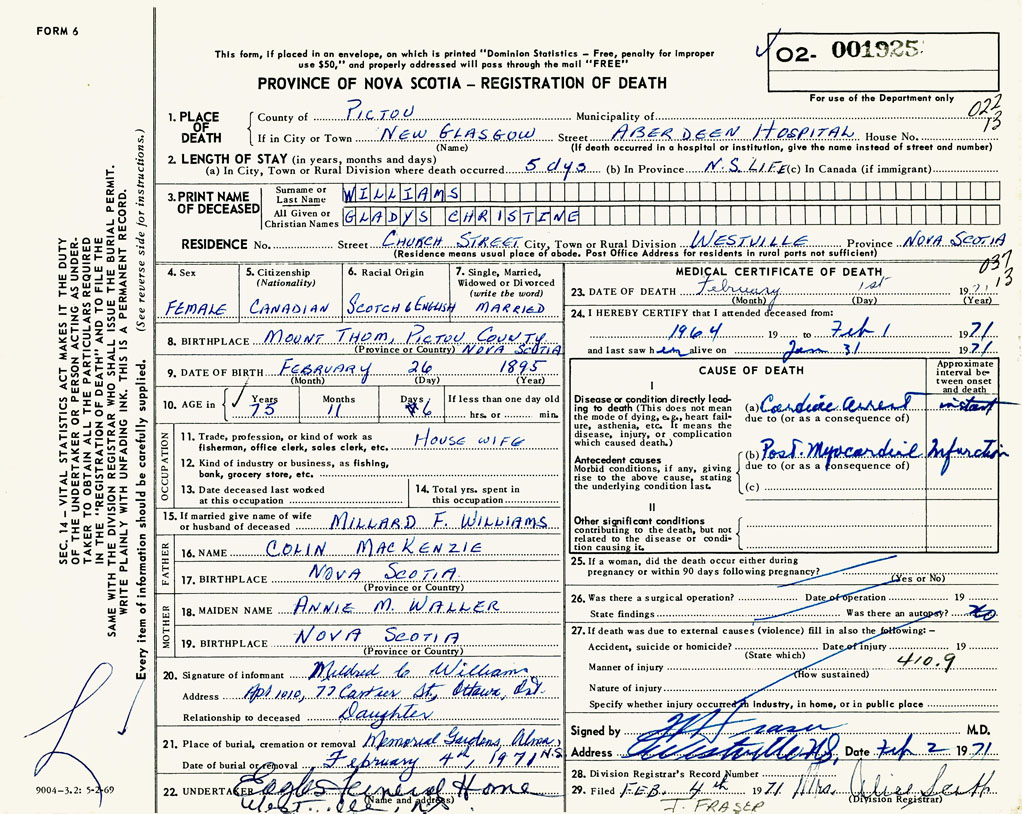 FORM 6
This form, if placed in an envelope, on which is printed "Dominion Statistics – Free, penalty for improper
use $50," and properly addressed will pass through the mail "FREE"
02- 001925
PROVINCE OF NOVA SCOTIA – REGISTRATION OF DEATH
For use of the Department only
022
13
1. PLACE OF DEATH
County of PICTOU Municipality of
If in City or Town NEW GLASGOW Street ABERDEEN HOSPITAL House No.
(Name) (If death occurred in a hospital or institution, give the name instead of street and number)
2. LENGTH OF STAY (in years, months and days)
(a) In City, Town or Rural Division where death occurred 5 dys (b) In Province N.S. LIFE (c) In Canada (if immigrant)
3. PRINT NAME OF DECEASED
Surname or Last Name WILLIAMS
All Given or Christian Names GLADYS CHRISTINE
RESIDENCE No. Street CHURCH STREET City, Town or Rural Division WESTVILLE Province NOVA SCOTIA
(Residence means usual place of abode. Post Office Address for residents in rural parts not sufficient)
037
13
4. Sex
FEMALE
5. Citizenship
(Nationality)
CANADIAN
6. Racial Origin
SCOTCH & ENGLISH
7. Single, Married,
Widowed or Divorced
(write the word)
MARRIED
8. BIRTHPLACE MOUNT THOM, PICTOU COUNTY
(Province or Country) NOVA SCOTIA
9. DATE OF BIRTH FEBRUARY 26 1895
(Month) (Day) (Year)
10. AGE in Years Months Days If less than one day old
75 11 6 hrs. or min.
OCCUPATION
11. Trade, profession, or kind of work as
fisherman, office clerk, sales clerk, etc. HOUSE WIFE
12. Kind of industry or business, as fishing,
bank, grocery store, etc.
13. Date deceased last worked
at this occupation
14. Total yrs. spent in
this occupation
15. If married give name of wife
or husband of deceased MILLARD F. WILLIAMS
FATHER
16. NAME COLIN MACKENZIE
17. BIRTHPLACE NOVA SCOTIA
(Province or Country)
MOTHER
18. MAIDEN NAME ANNIE M. WALLER
19. BIRTHPLACE NOVA SCOTIA
(Province or Country)
20. Signature of informant Mildred C William
Address Apt 1010, 77 Cartier St., Ottawa, Ont.
Relationship to deceased Daughter
21. Place of burial, cremation or removal Memorial Gardens, Alma,
Date of burial or removal February 4th, 1971 N.S.
22. UNDERTAKER Eagles Funeral Home
(Name and address)
MEDICAL CERTIFICATE OF DEATH
23. DATE OF DEATH February 1st 1971
(Month) (Day) (Year)
24. I HEREBY CERTIFY that I attended deceased from:
1964 19 to Feb 1 1971
and last saw h er alive on Jan 31 1971
CAUSE OF DEATH
Approximate
interval be-
tween onset
and death
I
Disease or condition directly lead-
ing to death (This does not mean
the mode of dying, e.g., heart fail-
ure, asthenia, etc. It means the
disease, injury, or complication
which caused death.)
(a) Cardiac arrest instant
due to (or as a consequence of)
Antecedent causes
Morbid conditions, if any, giving
rise to the above cause, stating
the underlying condition last.
(b) Post. Myocardial Infarction
due to (or as a consequence of)
(c)
II
Other significant conditions
contributing to the death, but not
related to the disease or condi-
tion causing it.
25. If a woman, did the death occur either during
pregnancy or within 90 days following pregnancy?
(Yes or No)
26. Was there a surgical operation? Date of operation 19
State findings Was there an autopsy? no
27. If death was due to external causes (violence) fill in also the following: –
Accident, suicide or homicide? Date of injury 19
(State which)
410.9
Manner of injury
(How sustained)
Nature of injury
Specify whether injury occurred in industry, in home, or in public place
Signed by Fraser M.D.
Address Westville N.S. Date Feb 2 1971
28. Division Registrar's Record Number
29. Filed FEB. 4th 1971 Mrs. Alice
(Division Registrar)
J. FRASER
SEC. 14 – VITAL STATISTICS ACT MAKES IT THE DUTY
OF THE UNDERTAKER OR PERSON ACTING AS UNDER-
TAKER TO OBTAIN ALL THE PARTICULARS REQUIRED
IN THE "REGISTRATION OF DEATH" AND TO FILE THE
SAME WITH THE DIVISION REGISTRAR WHO SHALL ISSUE THE BURIAL PERMIT.
WRITE PLAINLY WITH UNFADING INK. THIS IS A PERMANENT RECORD.
Every item of information should be carefully supplied. (See reverse side for instructions.)
9004-3.2: 5-2-69